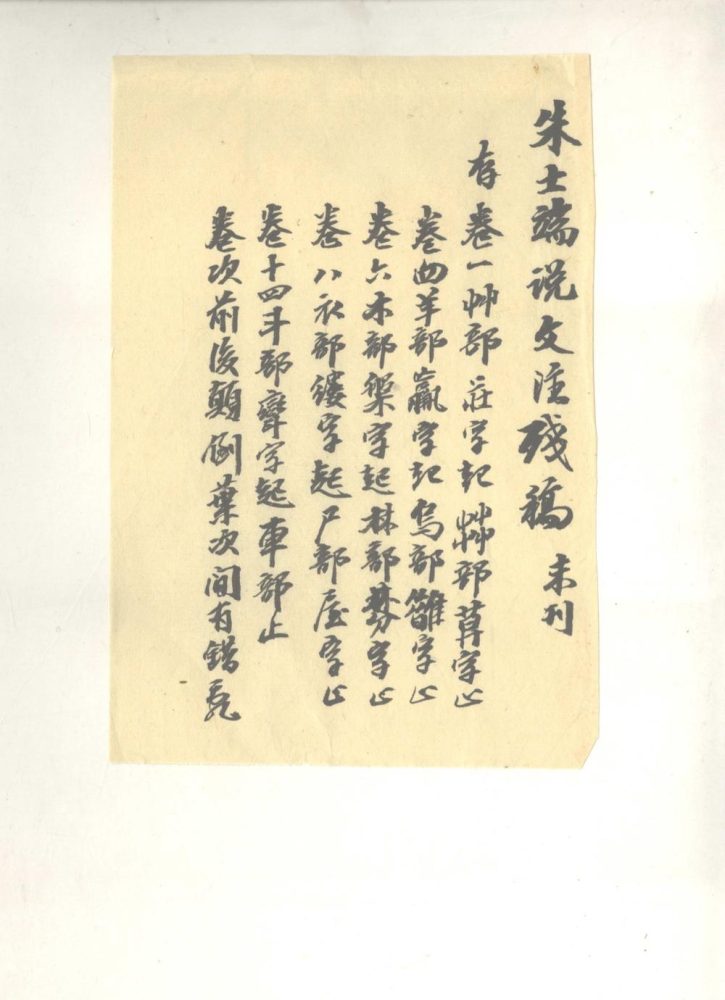 朱士端说文注残稿 未刊
存卷一艸部莊字起艸部草字止
卷四羊部羸字起鸟部雛字止
卷六木部築字起林部棼字止
卷八衣部褸字起尸部屋字止
卷十四斗部起車部止
卷次前後顛倒葉次间有錯乱